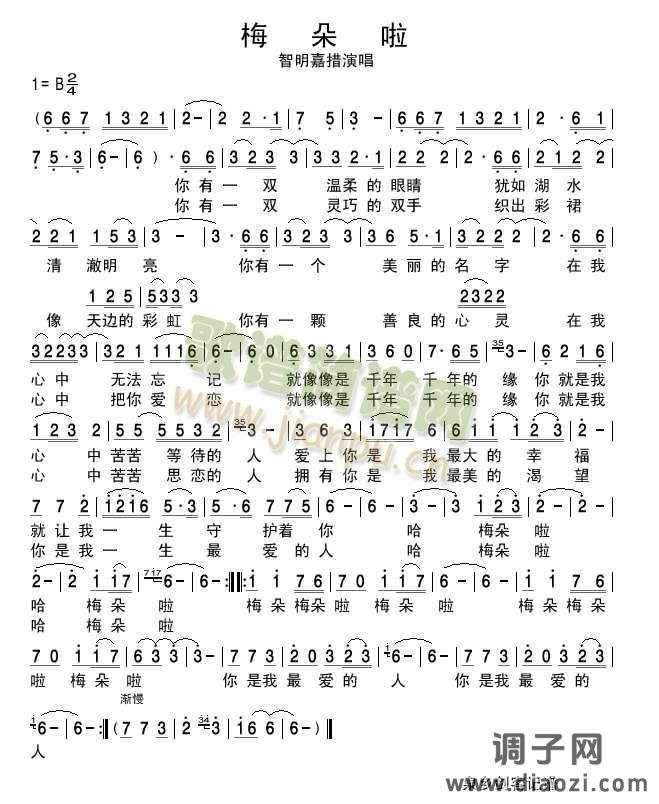 梅 朵 啦
智明嘉措演唱
1= B 2/4
(6 6 7 1 3 2 1 | 2 - | 2 2 · 1 | 7 5 | 3 - | 6 6 7 1 3 2 1 | 2 - | 2 · 6 1 |
7 5 · 3 | 6 - | 6 ) · 6 6 | 3 2 3 3 | 3 3 2 · 1 | 2 2 2 · 6 6 | 2 1 2 2 |
你 有 一 双 温柔 的 眼睛 犹如 湖 水
你 有 一 双 灵巧 的 双手 织出 彩 裙
2 2 1 1 5 3 | 3 - | 3 · 6 6 | 3 2 3 3 | 3 6 5 · 1 | 2 3 2 2 | 2 · 6 6 |
清 澈明 亮 你有 一 个 美 丽 的 名 字 在 我
1 2 5 | 5 3 3 3 2 3 2 2
像 天边的 彩 虹 你有 一 颗 善 良 的 心 灵 在 我
3 2 2 3 3 | 3 2 1 1 1 1 6 | 6 - | 6 6 0 | 6 3 3 1 | 3 6 0 | 7 · 6 5 | 3 5 3 - | 6 2 1 6 |
心 中 无法 忘 记 就像像是 千年 千 年的 缘 你就是我
心 中 把你 爱 恋 就像像是 千年 千 年的 缘 你就是我
1 2 3 2 | 5 5 5 5 3 2 | 3 5 3 - | 3 6 3 | 1 7 1 7 | 6 6 1 1 | 1 2 3 2 |
心 中苦苦 等待的 人 爱 上你 是 我 最大 的 幸 福
心 中苦苦 思恋的 人 拥 有你 是 我 最美 的 渴 望
7 7 2 | 1 2 1 6 5 · 3 | 5 · 3 5 | 6 - | 6 - | 3 - | 3 3 | 2 1 2 3 |
就 让 我 一 生 守 护着 你 哈 梅朵 啦
你 是 我 一 生 最 爱的 人 哈 梅朵 啦
2 - | 2 1 1 7 | 7 1 7 6 - | 6 - :||: 1 1 7 6 | 7 0 1 1 7 | 6 6 1 | 1 1 7 6 |
哈 梅 朵 啦 梅 朵 梅朵 啦 梅朵 啦 梅 朵 梅朵
哈 梅 朵 啦
7 0 1 1 7 | 6 3 3 | 3 - | 3 2 0 3 | 2 0 3 2 3 | 1 6 - | 6 - | 3 2 0 3 | 2 0 3 2 3 |
啦 梅 朵 啦 你 是我 最 爱 的 人 你 是我 最 爱 的
渐慢
1 6 - | 6 - :|| ( 7 7 3 | 2 3 4 3 | 1 6 6 | 6 - ) ||
人
歌谱简谱网
www.jianpu.cn
调子网
www.diaozi.com